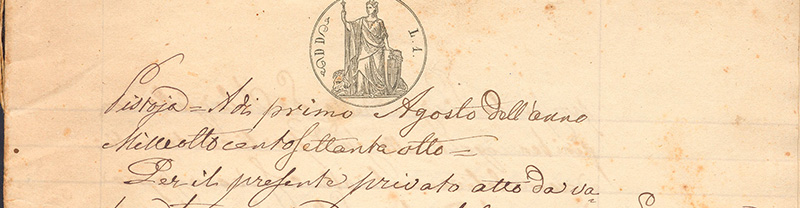 DD L. 1.
Pistoja = A dì primo Agosto dell'anno
Milleottocentosettantaotto =
Per il presente privato atto da va=